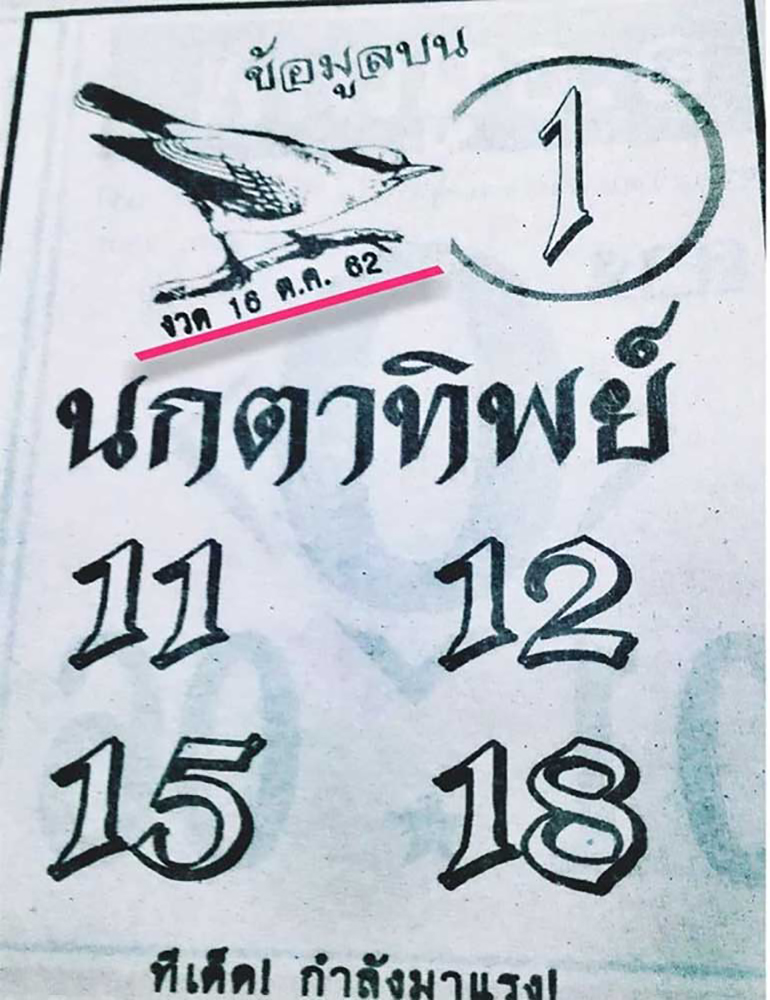 ข้อมูลบน
1
งวด 16 ต.ค. 62
นกตาทิพย์
11 12
15 18
ทีเด็ด! กำลังมาแรง!